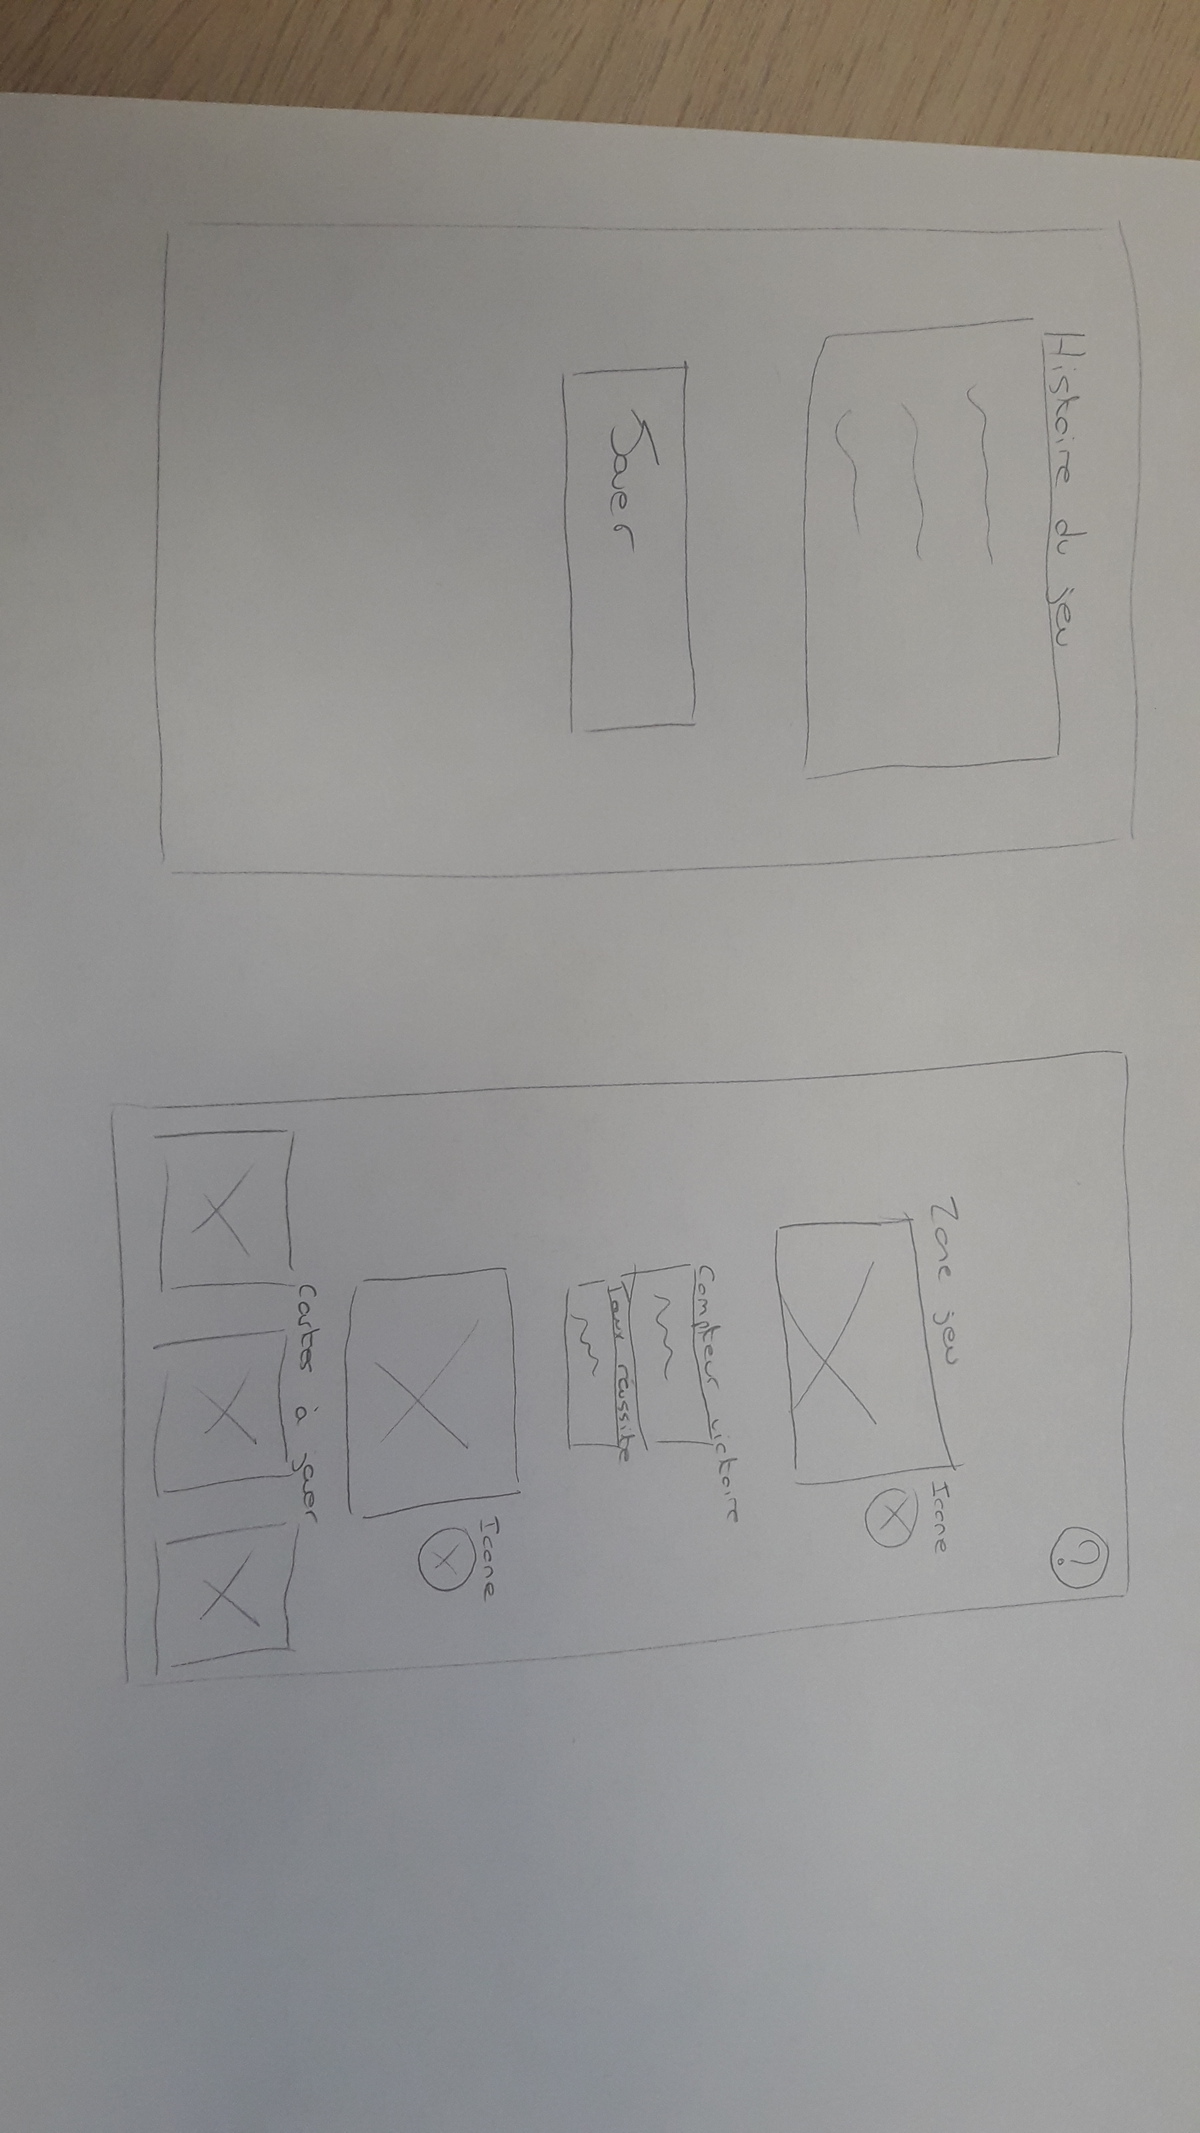 Histoire du jeu
Jouer
?
Zone jeu
Icone
Compteur victoire
Taux réussite
Icone
Cartes à jouer